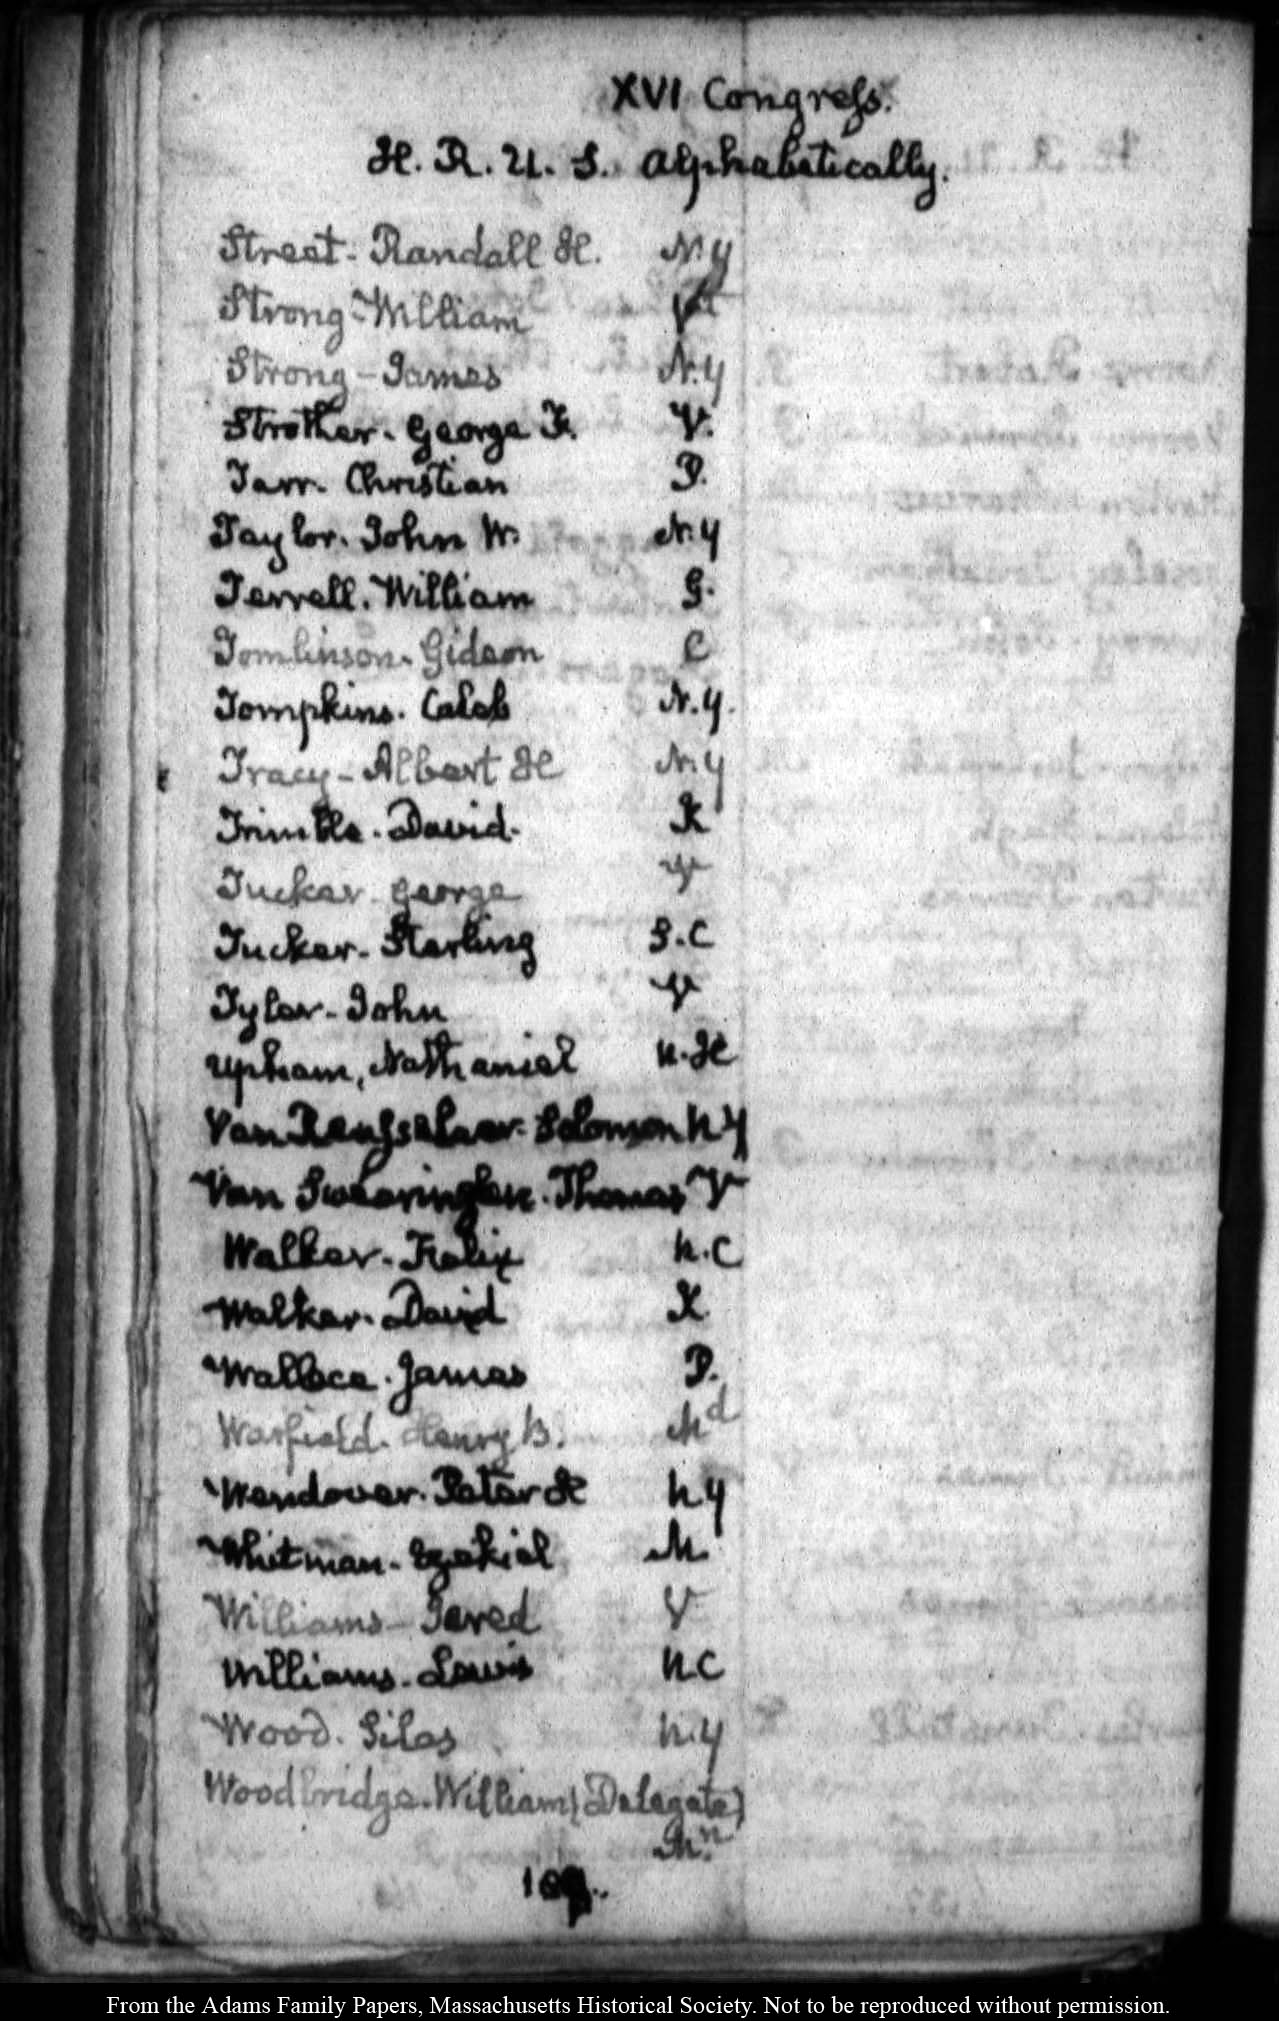 XVI Congreſs.
H. R. U. S. Alphabetically.
Street - Randall H. N. Y
Strong - William Vt
Strong - James N. Y
Strother - George F. V.
Tarr - Christian P.
Taylor. John W. N. Y
Terrell. William G.
Tomlinson. Gideon C
Tompkins. Caleb N. Y.
Tracy - Albert H N. Y
Trimble. David. K
Tucker George V
Tucker - Starling S. C
Tyler - John V
Upham, Nathaniel N. H
Van Renſselaer. Solomon N Y
Van Swearingen. Thomas V
Walker - Felix N. C
Walker. David K
Wallace. James P.
Warfield. Henry B. Md
Wendover. Peter H N Y
Whitman - Ezekiel M
Williams - Jared V
Williams. Lewis N C
Wood. Silas N. Y
Woodbridge. William (Delegate)
From the Adams Family Papers, Massachusetts Historical Society. Not to be reproduced without permission.